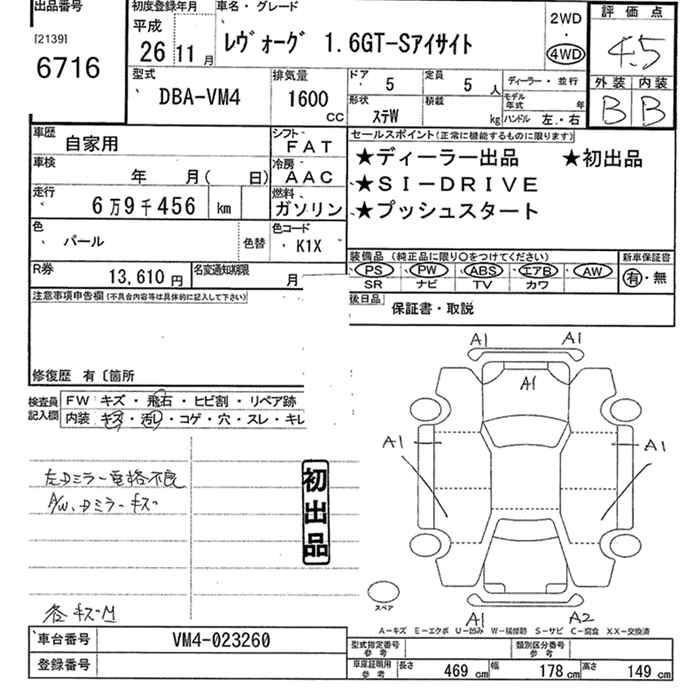 出品番号
[2139]
6716
初度登録年月
平成
26 11月
車名・グレード
レヴォーグ 1.6GT-Sアイサイト
2WD
・
4WD
評価点
4.5
外装 内装
B B
型式
DBA-VM4
排気量
1600 CC
ドア 5
定員 5 人
ディーラー・並行
形状 ステW
積載 kg
モデル年式 年
ハンドル 左・右
車歴 自家用
シフト FAT
車検 年 月( 日)
冷房 AAC
走行 6万9千456 km
燃料 ガソリン
色 パール
色替
色コード K1X
R券 13,610円
名変通知期限 月
セールスポイント(正常に機能するものに限ります)
★ディーラー出品 ★初出品
★SI-DRIVE
★プッシュスタート
装備品(純正品に限り○をつけてください)
新車保証書
PS PW ABS エアB AW
有・無
SR ナビ TV カワ
後日品 保証書・取説
注意事項申告欄(不具合内容等は具体的に記入して下さい)
修復歴 有〔箇所
検査員記入欄
FW キズ・飛石・ヒビ割・リペア跡
内装 キズ・汚レ・コゲ・穴・スレ・キレ
左Dミラー電格不良
A/W、Dミラーキズ
初出品
各キズM
A1 A1
A1
A1 A1
A1 A2
スペア
A-キズ E-エクボ U-凹み W-補修跡 S-サビ C-腐食 XX-交換済
車台番号 VM4-023260
登録番号
型式指定番号 参考
類別区分番号 参考
車庫証明用 参考
長さ 469 cm
幅 178 cm
高さ 149 cm